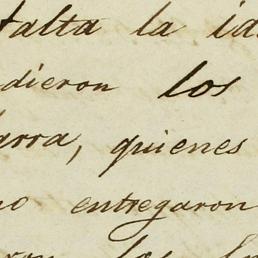 falta la id
dieron los
arra, quienes
no entregaron
los